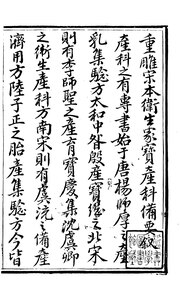 重雕宋本衛生家寶產科備要叙
產科之有專書始于唐楊師厚之產
乳集驗方太和中昝殷產寶繼之北宋
則有李師聖之產育寶慶集沈虞卿
之衛生產科方南宋則有虞流之備產
濟用方陸子正之胎產集驗方今皆